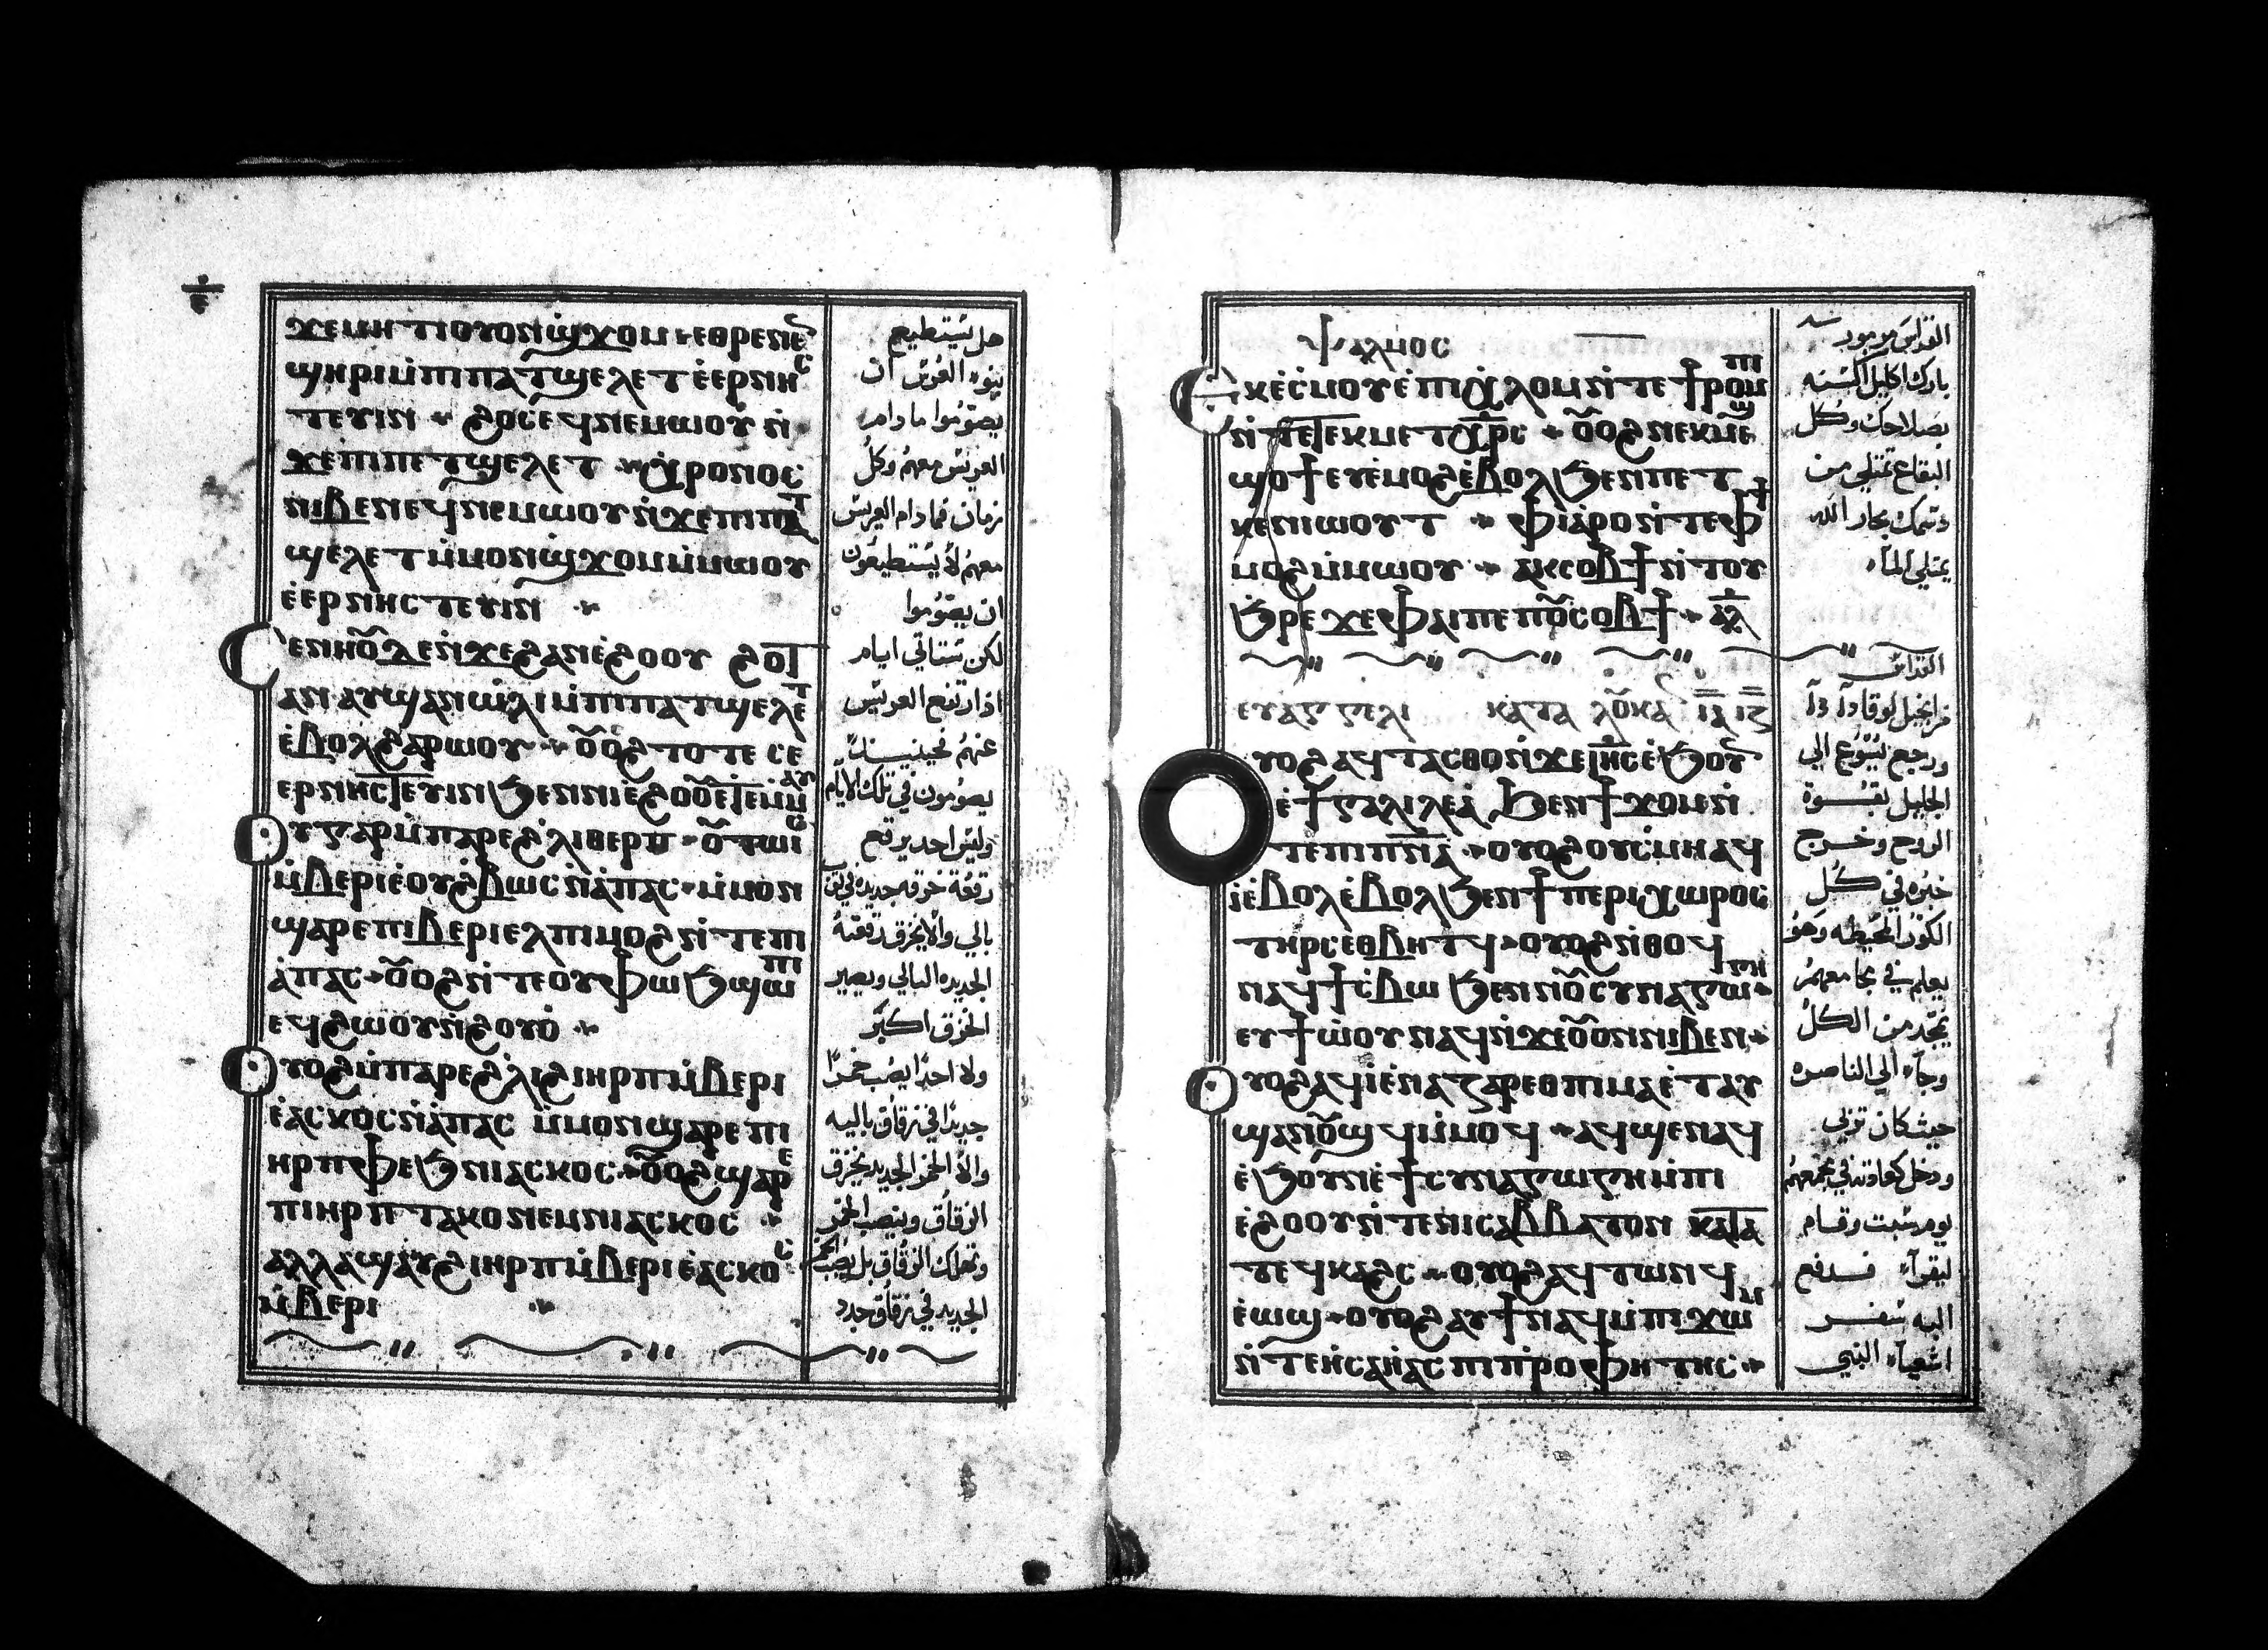 ϫⲉⲙⲏⲧⲓⲟⲩⲟⲛϣϫⲟⲙⲉⲑⲣⲉⲛⲉ
ϣⲏⲣⲓⲙ̇ⲡⲓⲡⲁⲧϣⲉⲗⲉⲧⲉ̇ⲉⲣⲛⲏⲥ
ⲧⲉⲩⲓⲛ ϩⲟⲥⲉϥⲛⲉⲙⲱⲟⲩⲛ̇
ϫⲉⲡⲓⲡⲉⲧϣⲉⲗⲉⲧ ⲭ̇ⲣⲟⲛⲟⲥ
ⲛⲓⲃⲉⲛⲉϥⲛⲉⲙⲱⲟⲩⲛ̇ϫⲉⲡⲓⲡⲁⲧ
ϣⲉⲗⲉⲧⲙ̇ⲙⲟⲛϣ̇ϫⲟⲙⲙ̇ⲙⲱⲟⲩ
ⲉ̇ⲉⲣⲛⲏⲥⲧⲉⲩⲓⲛ
ⲥⲉⲛⲏⲟⲩ̅ⲇⲉⲛ̇ϫⲉϩⲁⲛⲉ̇ϩⲟⲟⲩ ϩⲟⲧ
ⲁⲛ ⲁⲩϣⲁⲛⲱ̇ⲗⲓⲙ̇ⲡⲓⲡⲁⲧϣⲉⲗⲉⲧ
ⲉ̇ⲃⲟⲗϩⲁⲣⲱⲟⲩ ⲟⲩ̅ⲟϩ ⲧⲟⲧⲉ ⲥⲉ
ⲉⲣⲛⲏⲥⲧⲉⲩⲓⲛϧⲉⲛⲛⲓⲉ̇ϩⲟⲟⲩⲉ̇ⲧⲉⲙ̇ⲙⲁⲩ
ⲟⲩⲅⲁⲣⲙ̇ⲡⲁⲣⲉϩ̇ⲗⲓⲑⲉⲣⲡ ⲟⲩ̅ⲧⲱⲓⲥ
ⲙ̇ⲃⲉⲣⲓⲉ̇ⲟⲩϩⲃⲱⲥⲛ̇ⲁ̇ⲡⲁⲥ ⲙ̇ⲙⲟⲛ
ϣⲁⲣⲉⲡⲓⲃⲉⲣⲓⲉⲗⲡⲓⲙⲟϩⲛ̇ⲧⲉⲡⲓ
ⲁ̇ⲡⲁⲥ ⲟⲩ̅ⲟϩⲛ̇ⲧⲉⲟⲩⲫⲱϧϣⲱⲡⲓ
ⲉϥϩⲱⲟⲩⲛ̇ϩⲟⲩⲟ̇
ⲟⲩⲟϩⲙ̇ⲡⲁⲣⲉϩ̇ⲗⲓϩⲓⲏⲣⲡⲙ̇ⲃⲉⲣⲓ
ⲉ̇ⲁⲥⲕⲟⲥⲛ̇ⲁ̇ⲡⲁⲥ ⲙ̇ⲙⲟⲛϣⲁⲣⲉⲡⲓ
ⲏⲣⲡⲫⲉϧⲛⲓⲁⲥⲕⲟⲥ ⲟⲩ̅ⲟϩϣⲁⲣⲉ
ⲡⲓⲏⲣⲡⲧⲁⲕⲟⲛⲉⲙⲛⲓⲁⲥⲕⲟⲥ
ⲁⲗⲗⲁϣⲁⲩϩⲓⲏⲣⲡⲙ̇ⲃⲉⲣⲓⲉ̇ⲁⲥⲕⲟⲥ
ⲙ̇ⲃⲉⲣⲓ
هل يستطيع
بنوا العرس ان
يصوموا ما دام
العريس معهم وكل
زمان فما دام العريس
معهم لا يستطيعون
ان يصوموا
لكن ستاتي ايام
اذا ارتفع العريس
عنهم فحينيذ
يصومون في تلك الايام
وليس احد يرقع
رقعة خرقه جديده في ثوب
بالي والا يخرق رقعته
الجديده البالي ويصير
الخرق اكبر
ولا احدا يصب خمرا
جديدا في زقاق باليه
والا الخمر الجديد يخرق
الزقاق وينصب الخمر
وتهلك الزقاق بل يصب الخمر
الجديد في زقاق جدد
ⲯⲁⲗⲙⲟⲥ
ⲉⲕⲉ̇ⲥ̇ⲙⲟⲩⲉ̇ⲡⲓⲭ̇ⲗⲟⲙⲛ̇ⲧⲉϯⲣⲟⲙⲡⲓ
ⲛ̇ⲧⲉⲧⲉⲕⲙⲉⲧⲭ̅ⲣ̅ⲥ̅ ⲟⲩ̅ⲟϩⲛⲉⲕⲙⲉϣ
ϣⲟϯⲉⲩⲉ̇ⲙⲟϩⲉ̇ⲃⲟⲗϧⲉⲛⲡⲉⲧ
ⲕⲉⲛⲓⲱⲟⲩⲧ ⲫⲓⲁ̇ⲣⲟⲛ̇ⲧⲉⲫϯ
ⲙⲟϩⲙ̇ⲙⲱⲟⲩ ⲁⲕⲥⲟⲃϯⲛ̇ⲧⲟⲩ
ϧ̇ⲣⲉϫⲉⲫⲁⲓⲡⲉⲡⲟⲩ̅ⲥⲟⲃϯ ⲁⲗ
ⲉⲩⲁⲅⲅⲉⲗⲓ ⲕⲁⲧⲁ ⲗⲟⲩ̅ⲕⲁⲛ ⲓ̅ⲇ̅ ⲓ̅ⲍ̅
ⲟⲩⲟϩⲁϥⲧⲁⲥⲑⲟⲛ̇ϫⲉⲓⲏ̅ⲥ̅ⲉ̇ϧⲟⲩⲛ
ⲉ̇ϯⲅⲁⲗⲓⲗⲉⲁ̇ ϧⲉⲛϯϫⲟⲙⲛ̇
ⲧⲉⲡⲓⲡ̅ⲛ̅ⲁ̅ ⲟⲩⲟϩⲟⲩⲥ̇ⲙⲏⲁϥ
ⲓ̇ⲉ̇ⲃⲟⲗⲉ̇ⲃⲟⲗϧⲉⲛϯⲡⲉⲣⲓⲭⲱⲣⲟⲥ
ⲧⲏⲣⲥⲉⲑⲃⲏⲧϥ ⲟⲩⲟϩⲛ̇ⲑⲟϥ
ⲛⲁϥϯⲥ̇ⲃⲱ ϧⲉⲛⲛⲟⲩ̅ⲥⲩⲛⲁⲅⲱⲅⲏ
ⲉⲩϯⲱ̇ⲟⲩⲛⲁϥⲛ̇ϫⲉⲟⲩ̅ⲟⲛⲛⲓⲃⲉⲛ
ⲟⲩⲟϩⲁϥⲓ̇ⲉ̇ⲛⲁⲍⲁⲣⲉⲑⲡⲓⲙⲁⲉ̇ⲧⲁⲩ
ϣⲁⲛⲟⲩ̅ϣϥⲙ̇ⲙⲟϥ ⲁϥϣⲉⲛⲁϥ
ⲉ̇ϧⲟⲩⲛⲉ̇ϯⲥⲩⲛⲁⲅⲱⲅⲏⲙ̇ⲡⲓ
ⲉ̇ϩⲟⲟⲩⲛ̇ⲧⲉⲛⲓⲥⲁⲃⲃⲁⲧⲟⲛ ⲕⲁⲧⲁ
ⲧⲉϥⲕⲁϩⲥ ⲟⲩⲟϩⲁϥⲧⲱⲛϥ
ⲉ̇ⲱϣ ⲟⲩⲟϩⲁⲩϯⲛⲁϥⲙ̇ⲡⲓϫⲱⲙ
ⲛ̇ⲧⲉⲏ̇ⲥⲁⲏ̇ⲁⲥⲡⲓⲡ̇ⲣⲟⲫⲏⲧⲏⲥ
القداس مزمور
بارك اكليل السنه
بصلاحك وكل
البقاع تمتلي من
دسمك بحار الله
يمتلي الماء
القداس
من انجيل لوقا
ورجع يسوع الي
الجليل بقوة
الروح وخرج
خبره في كل
الكور المحيطه وهو
يعلم في مجامعهم
يمجد من الكل
وجاء الي الناصره
حيث كان تربي
ودخل كعادته في مجمعهم
يوم سبت وقام
ليقرا فدفع
اليه سفر
اشعياء النبي